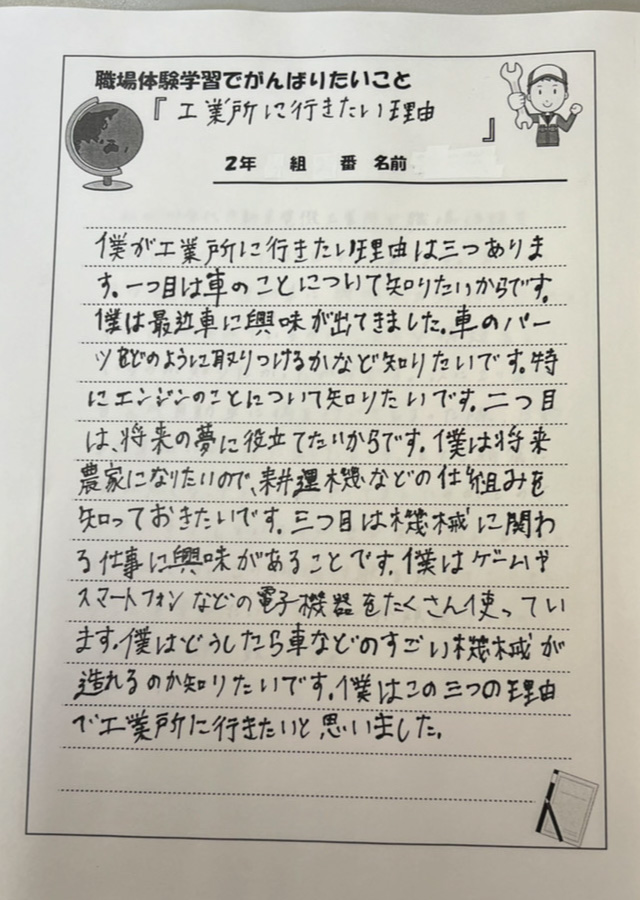 職場体験学習でがんばりたいこと
『工業所に行きたい理由
』
2年 組 番 名前
僕が工業所に行きたい理由は三つありま
す。一つ目は車のことについて知りたいからです。
僕は最近車に興味が出てきました。車のパー
ツをどのように取りつけるかなど知りたいです。特
にエンジンのことについて知りたいです。二つ目
は、将来の夢に役立てたいからです。僕は将来
農家になりたいので、耕運機などの仕組みを
知っておきたいです。三つ目は機械に関わ
る仕事に興味があることです。僕はゲームや
スマートフォンなどの電子機器をたくさん使ってい
ます。僕はどうしたら車などのすごい機械が
造れるのか知りたいです。僕はこの三つの理由
で工業所に行きたいと思いました。